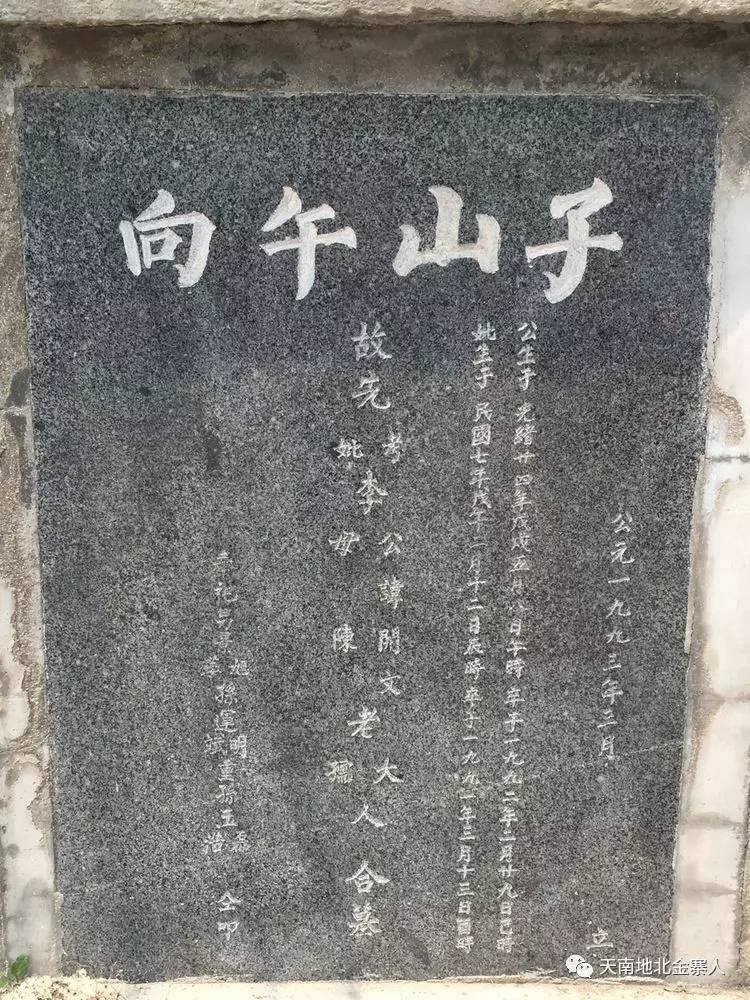 子山午向
公元一九九三年三月 立
公生于光緒廿四年戊戌五月八日午時卒于一九九二年二月廿九日巳時
妣生于民國七年戊午二月十二日辰時卒于一九九一年三月十三日酉時
故先考妣李公諱開文母陳老大孺人合墓
奉祀男景旭華孫運明斌重孫玉磊浩 仝叩
天南地北金寨人